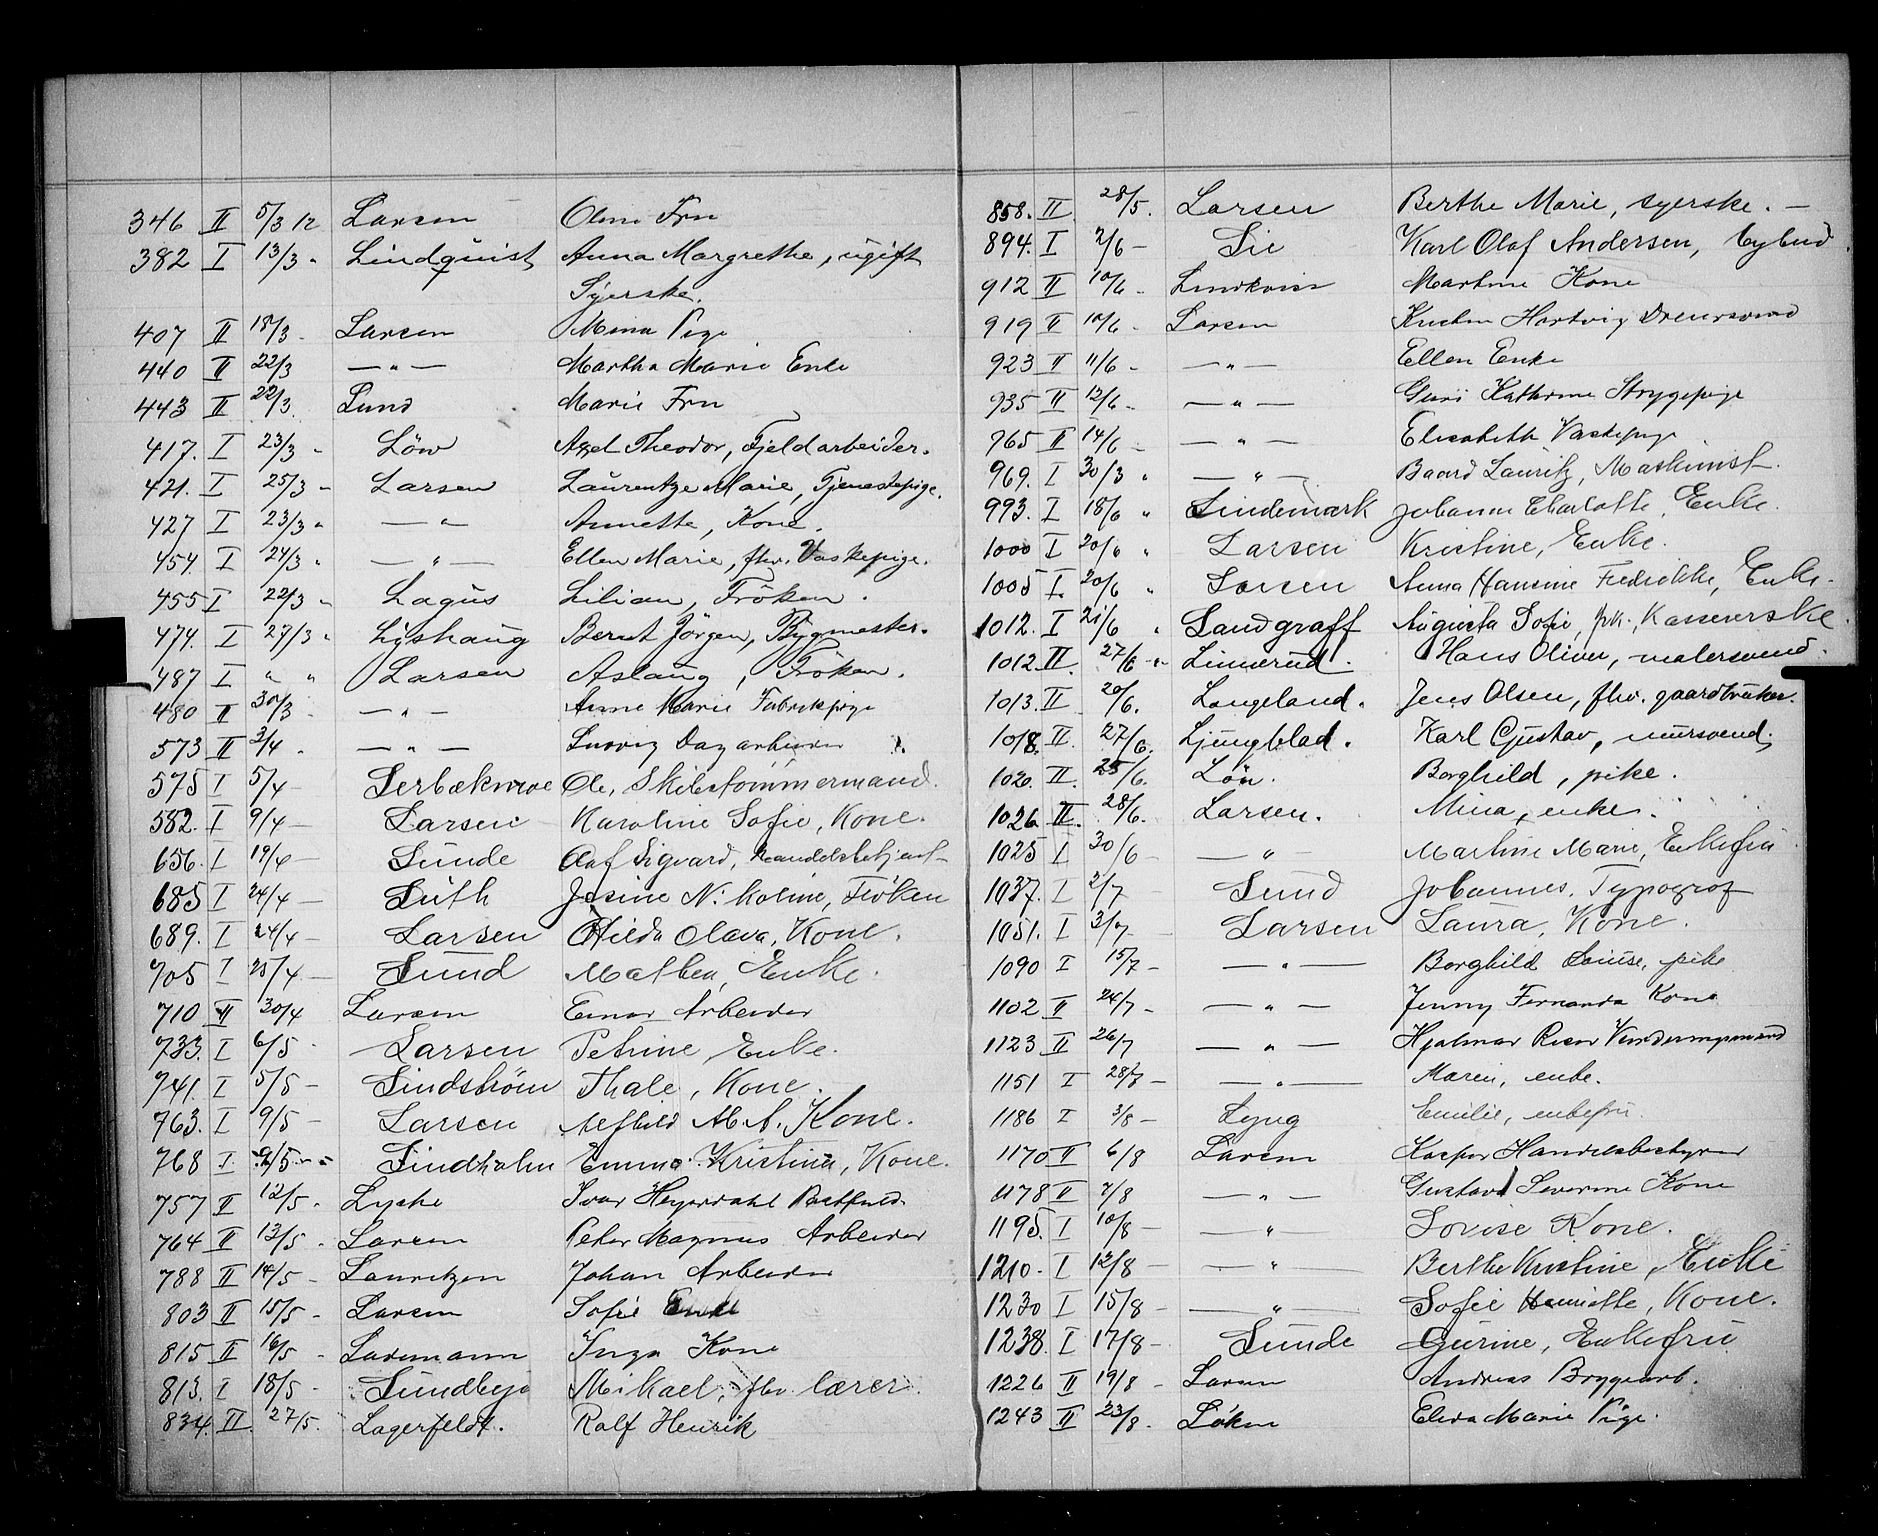 346 II 5/3 12 Larsen Oline Fru
382 I 13/3 " Lindquist Anna Margrethe, ugift
Syerske.
407 II 18/3 - Larsen Mina Pige
440 II 22/3 — " — Martha Marie Enke
443 II 22/3 Lund Marie Fru
417. I 23/3 " Löw Axel Theodor, Fjeldarbeider.
421. I 25/3 - Larsen Laurentze Marie, Tjenestepige.
427 I 23/3 " — " Annette, Kone.
454. I 24/3 " — " — Ellen Marie, fhv. Vaskepige.
455 I 22/3 " Lagus Lilian, Fröken.
474. I 27/3 " Lyshaug Bernt Jörgen, Bygmester.
487 I " " Larsen Aslaug, Fröken.
480 II 30/3 - — " — Anne Marie Fabrikpige
573 II 3/4 - — " — Ludvig Dagarbeider
575 I 5/4 - Ole, Skibstömmermand.
582. I 9/4 — Larsen Karoline Sofie, Kone.
656. I 19/4 — Lunde Olaf Sigvard, Handelsbetjent
685 I 24/4 — Luth Josine Nikoline, Fröken
689. I 24/4 — Larsen Olava, Kone.
705 I 25/4 — Lund Mathea, Enke.
710 II 30/4 Larsen Einar Arbeider
733. I 6/5 - Larsen Petrine, Enke.
741. I 5/5 — Lindström Thale, Kone.
763. I 9/5 — Larsen Alfhild M. A. Kone.
768 I 9/5 - " Lindholm Emma Kristina, Kone.
757 II 12/5 - Lyche Ivar Heyerdahl
764 II 13/5 - Larsen Peter Magnus Arbeider
788 II 14/5 - Lauritzen Johan Arbeider
803 II 15/5 - Larsen Sofie Enke
815 II 16/5 - Lademann Inga Kone
813. I 18/5 - Lundbye Mikael, fhv. lærer.
834. II. 27/5. Lagerfeldt. Ralf Henrik
858. II 28/5. Larsen Berthe Marie, syerske. —
894. I 2/6 — Lie Karl Olaf Andersen, bybud.
912 II 10/6 - Lindkvist Martine Kone
919 II 10/6 - Larsen Hartvig
923 II 11/6 - — " — Ellen Enke
935 II 12/6 - — " — Guri Kathrine Strygepige
965 II 14/6 - — " — Elisabeth Vaskepige
969. I 30/3 " — " — Baard Lauritz, Maskinist.
993. I 18/6 " Lindemark Johanne Charlotte, Enke.
1000 I 20/6 " Larsen Kristine, Enke.
1005 I. 20/6 " Larsen Anna Hansine Fredrikke, Enke.
1012. I 21/6 " Landgraff Augusta Sofie, frk., Kassererske.
1012 II. 27/6 - " Linnerud. Hans Oliver, malersvend.
1013. II 20/6. Langeland. Jens Olsen, fhv. gaardbruker.
1018. II. 27/6. Ljungblad. Karl Gustav, mursvend.
1020. II. 25/6. Lön. Borghild, pike.
1026. II. 28/6. Larsen. Mina, enke.
1025 I 30/6 — — " — Martine Marie, Enkefru
1037. I 2/7 Lund Johannes. Typograf
1051. I 3/7 Larsen Laura, Kone.
1090 I 15/7 - — " — Borghild Louise, pike
1102 II 24/7 - — " — Jenny Fernanda Kone
1123 II 26/7 — " — Hjalmar
1151 I 28/7 — — " — Maren, enke.
1186 I 3/8 — Lyng Emilie, enkefru.
1170 II 6/8 Larsen Kasper Handelsbestyrer
1178 II 7/8 — " — Gustava Severine Kone
1195. I 10/8 — — " Lovise Kone.
1210. I 12/8 — — " — Berthe Kristine, Enke
1230 I 15/8 — — " — Sofie Henriette, Kone.
1238. I 17/8 — Lunde Gurine, Enkefru
1226 II 19/8 - Larsen Andreas Bryggearb.
1243 II 23/8. Löken Marie Pige.